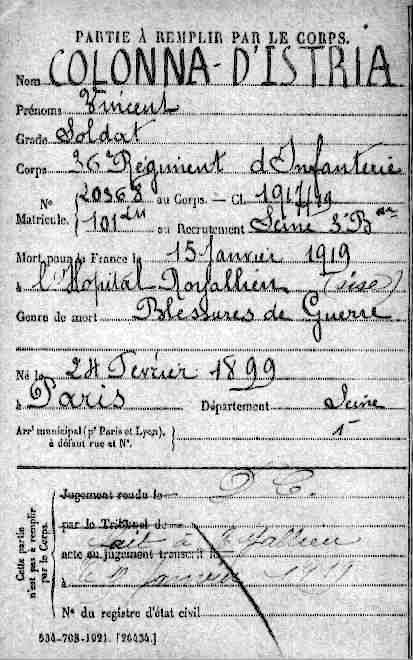 PARTIE À REMPLIR PAR LE CORPS.
Nom COLONNA-D'ISTRIA
Prénoms Vincent
Grade Soldat
Corps 36e Régiment d'Infanterie
N° 20368 au Corps. — Cl. 1917/19
Matricule. 101 au Recrutement Seine 3e Bau
Mort pour la France le 15 Janvier 1919
à l'Hopital Royallieu (oise)
Genre de mort Blessures de Guerre
Né le 24 Fevrier 1899
à Paris Département Seine
Arrt municipal (pr Paris et Lyon),
à défaut rue et N°.
Cette partie n'est pas à remplir par le Corps.
Jugement rendu le D C.
par le Tribunal de
acte ou jugement transcrit le
à Janvier
N° du registre d'état civil
534-708-1921. [26434.]